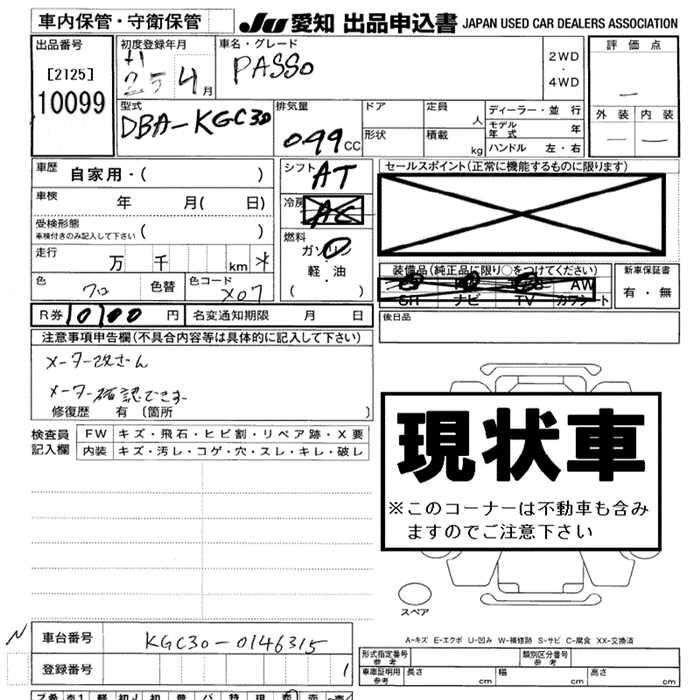 車内保管・守衛保管
JU 愛知 出品申込書 JAPAN USED CAR DEALERS ASSOCIATION
出品番号
[2125]
10099
初度登録年月
H
25 4 月
車名・グレード
PASSO
2WD
・
4WD
評価点
外装 内装
型式
DBA-KGC30
排気量
099 CC
ドア
形状
定員 人
積載 kg
ディーラー・並 行
モデル年式 年
ハンドル 左・右
車歴 自家用・( )
車検 年 月( 日)
受検形態
車検付きのみ記入して下さい ( )
走行 万 千 km *
色 クロ 色替 色コード X07
シフト AT
冷房 AC
燃料
ガソリン
軽・油
( ・ )
セールスポイント(正常に機能するものに限ります)
装備品(純正品に限り○をつけてください)
AW
SH ナビ TV カワシート
新車保証書
有・無
R券 10100 円 名変通知期限 月 日
後日品
注意事項申告欄(不具合内容等は具体的に記入して下さい)
メーター改ざん
メーター確認できず
修復歴 有 〔箇所 〕
検査員記入欄
FW キズ・飛石・ヒビ割・リペア跡・X要
内装 キズ・汚レ・コゲ・穴・スレ・キレ・破レ
現状車
※このコーナーは不動車も含み
ますのでご注意下さい
スペア
A-キズ E-エクボ U-凹み W-補修跡 S-サビ C-腐食 XX-交換済
N 車台番号 KGC30-0146315
登録番号 1
形式指定番号 参考
類別区分番号 参考
車庫証明用 参考 長さ 幅 高さ